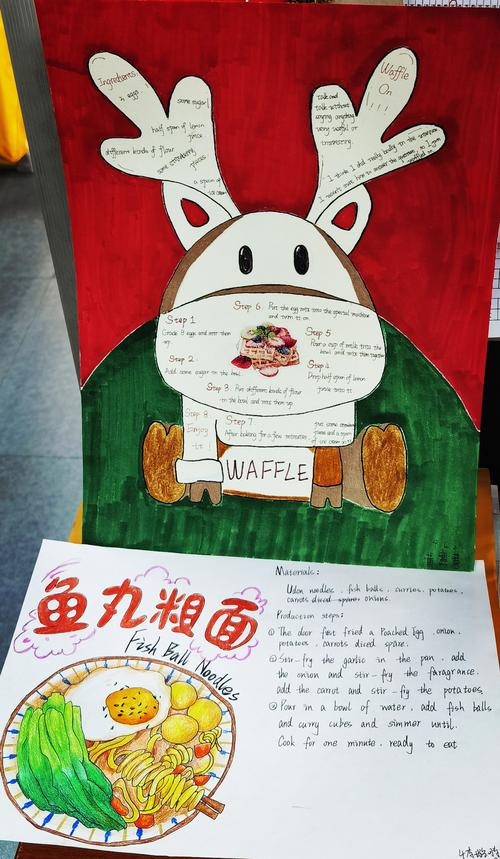 Ingredients:
3 eggs.
some sugar!
half spoon of lemon
juice
different kinds of flour
some strawberry
pieces
a spoon of
ice cream
Waffle
On
!!!
talk and
talk without
saying anything
very useful or
Step 6. Put the egg mix into the special machine
and turn it on.
Step 1
Crack 3 eggs and stir them
up.
Step 5
Pour a cup of milk into the
bowl and mix them together
Step 2.
Add some sugar in the bowl.
Step 4
Drop half spoon of lemon
juice into it
Step 3. Put different kinds of flour
in the bowl and mix them up.
Step 8
Enjoy
it!
Step 7
After baking for a few minutes
put some strawberry
WAFFLE
鱼丸粗面
Fish Ball Noodles
Materials:
Udon noodles. fish balls. curries. potatoes.
carrots diced spare. onions.
Production steps:
① The door first fried a Poached Egg. onion.
potatoes. carrots diced spare.
② Stir-fry the garlic in the pan. add
the onion and stir-fry the faragrance.
add the carrot and stir-fry the potatoes.
③ Pour in a bowl of water. add fish balls
and curry cubes and simmer until.
Cook for one minute. ready to eat